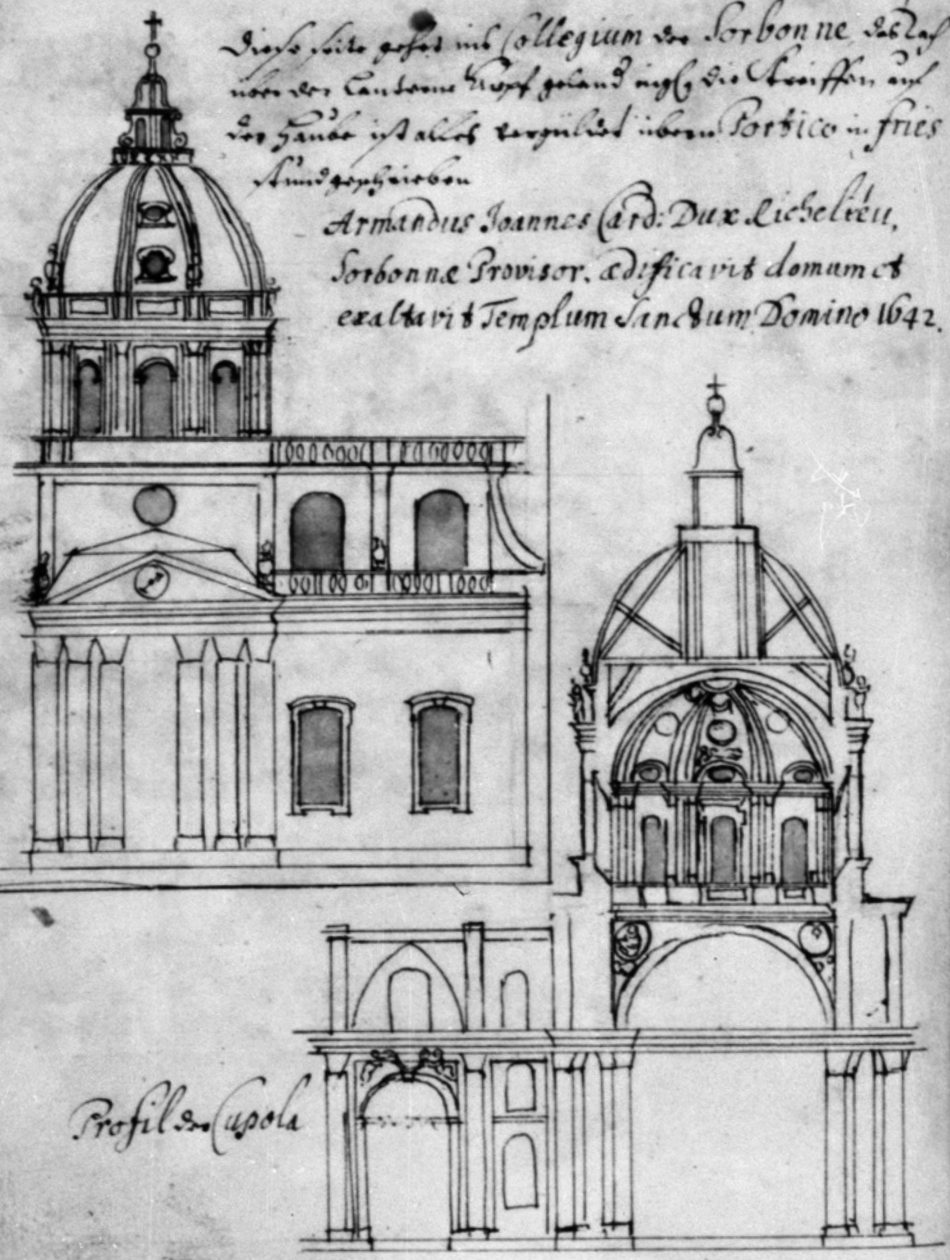 Diese seite gehet ins Collegium der Sorbonne, das
über der Lanterne Knopf die Streiffen auf
der Haube ist alles vergüldet übern Portico in fries
stund geschrieben
Armandus Joannes Card: Dux Richelieu,
Sorbonnæ Provisor. ædificavit domum et
exaltavit Templum Sanctum Domino 1642.
Profil der Cupola